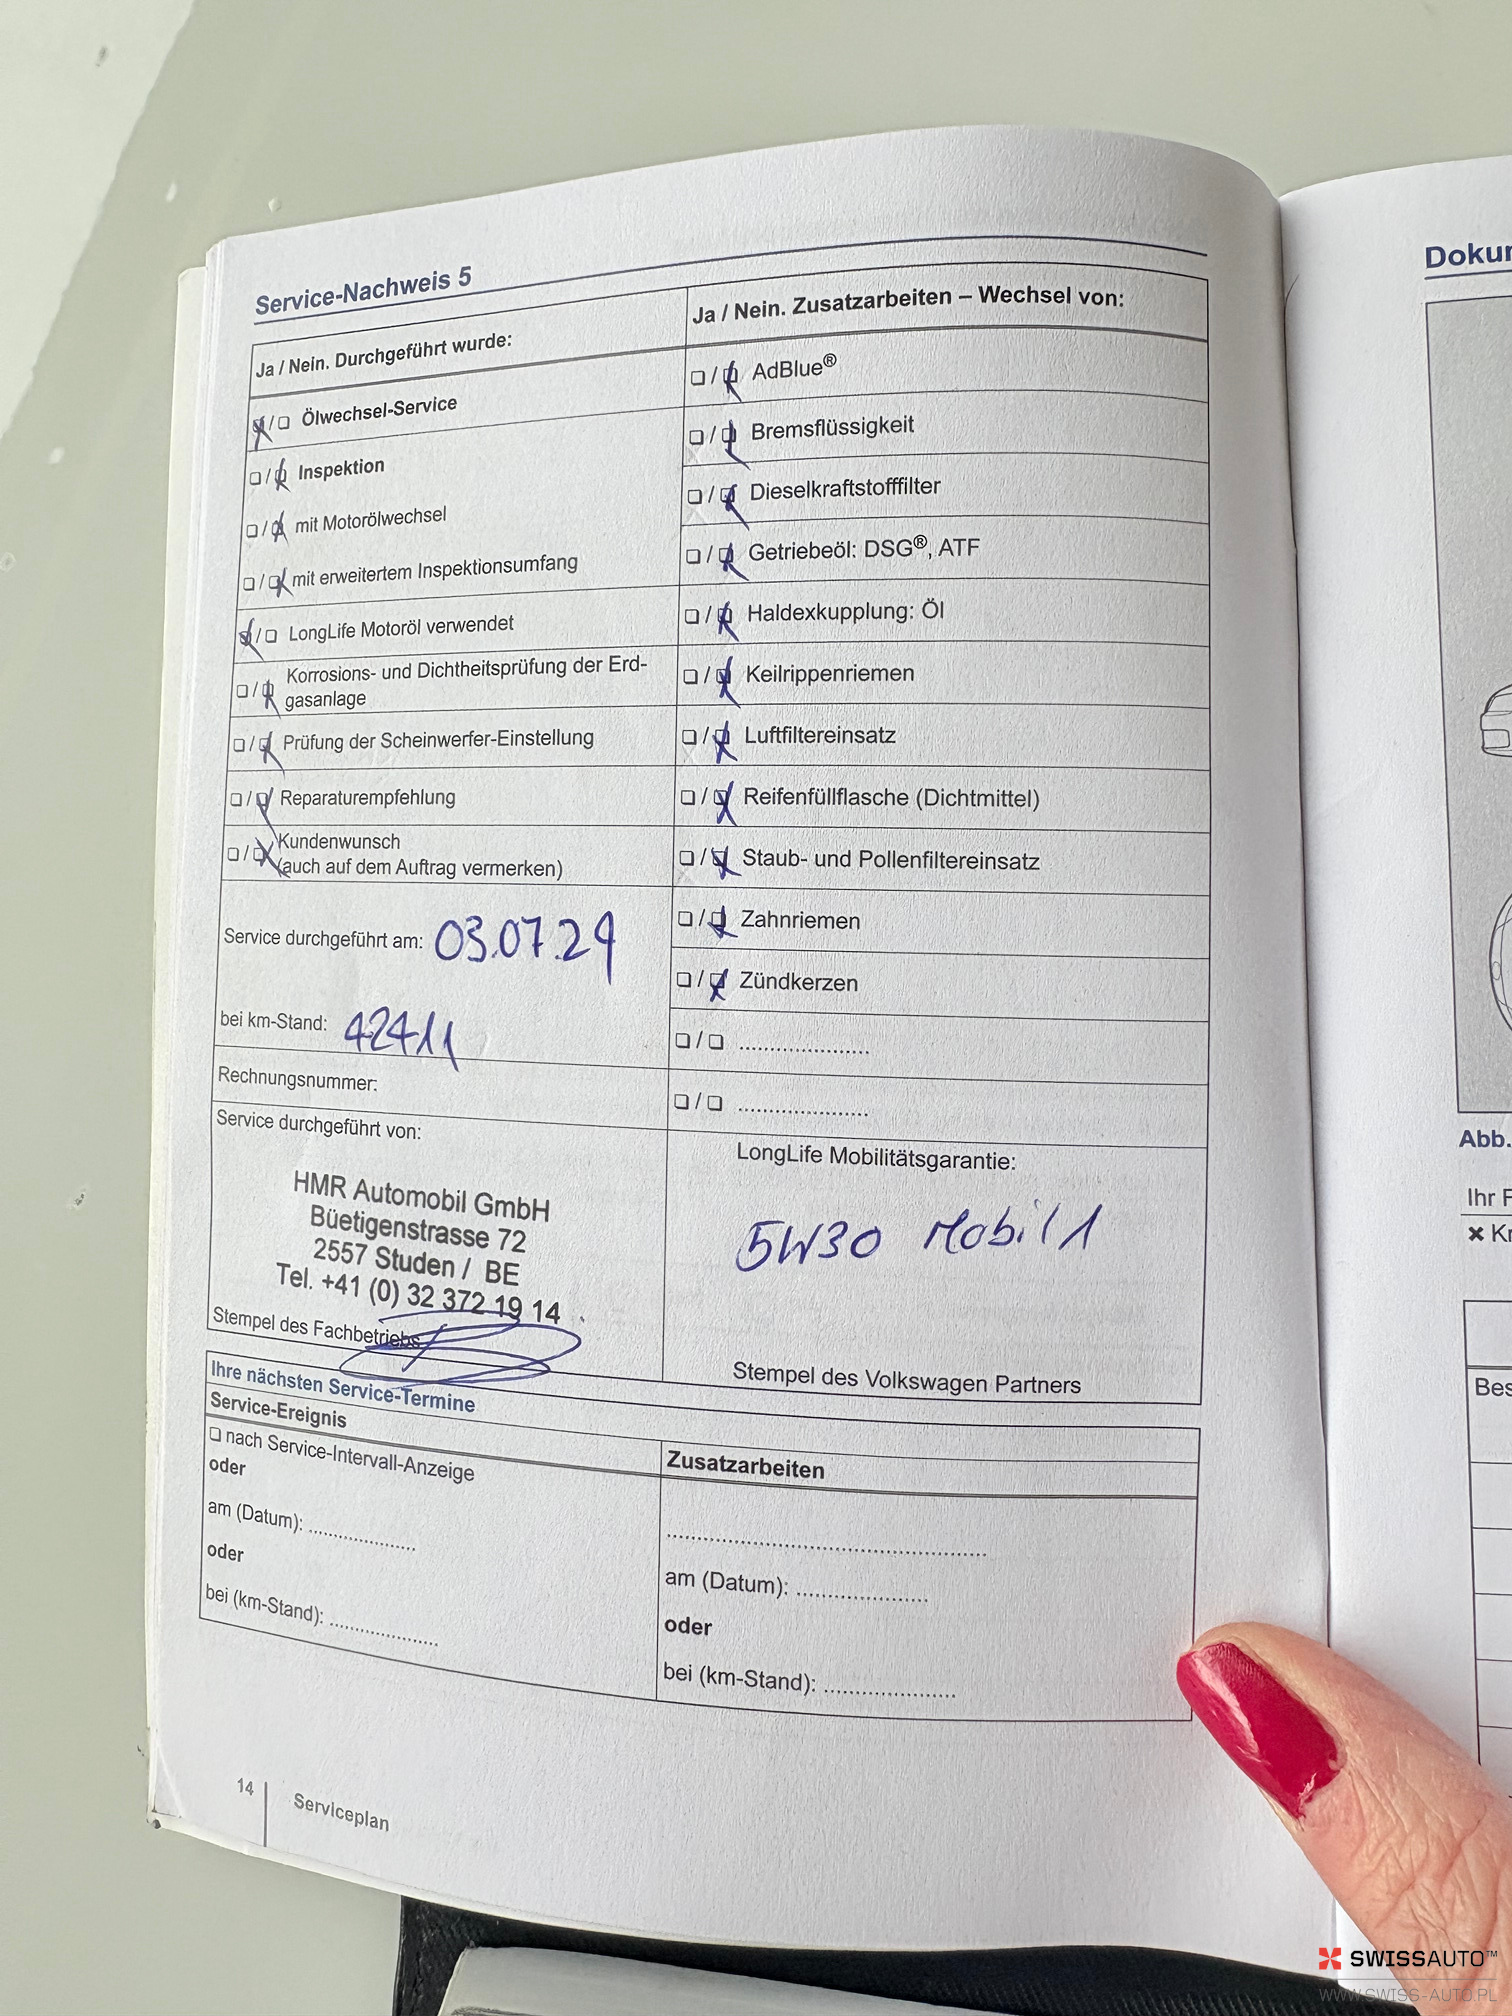 Service-Nachweis 5
Ja / Nein. Durchgeführt wurde:
☒/❏ Ölwechsel-Service
❏/☒ Inspektion
❏/☒ mit Motorölwechsel
❏/☒ mit erweitertem Inspektionsumfang
☒/❏ LongLife Motoröl verwendet
❏/☒ Korrosions- und Dichtheitsprüfung der Erd-
gasanlage
❏/☒ Prüfung der Scheinwerfer-Einstellung
❏/☒ Reparaturempfehlung
❏/☒ Kundenwunsch
(auch auf dem Auftrag vermerken)
Service durchgeführt am: 03.07.24
bei km-Stand: 42411
Rechnungsnummer:
Service durchgeführt von:
HMR Automobil GmbH
Büetigenstrasse 72
2557 Studen / BE
Tel. +41 (0) 32 372 19 14
Stempel des Fachbetriebs
Ja / Nein. Zusatzarbeiten – Wechsel von:
❏/☒ AdBlue®
❏/☒ Bremsflüssigkeit
❏/☒ Dieselkraftstofffilter
❏/☒ Getriebeöl: DSG®, ATF
❏/☒ Haldexkupplung: Öl
❏/☒ Keilrippenriemen
❏/☒ Luftfiltereinsatz
❏/☒ Reifenfüllflasche (Dichtmittel)
❏/☒ Staub- und Pollenfiltereinsatz
❏/☒ Zahnriemen
❏/☒ Zündkerzen
❏/❏ ......................
❏/❏ ......................
LongLife Mobilitätsgarantie:
5W30 Mobil 1
Stempel des Volkswagen Partners
Ihre nächsten Service-Termine
Service-Ereignis
❏ nach Service-Intervall-Anzeige
oder
am (Datum): ..................
oder
bei (km-Stand): ..................
Zusatzarbeiten
......................................................
am (Datum): ......................
oder
bei (km-Stand): ......................
14
Serviceplan
Doku
Abb.
Ihr F
✖ Kr
Bes
SWISSAUTO™
WWW.SWISS-AUTO.PL